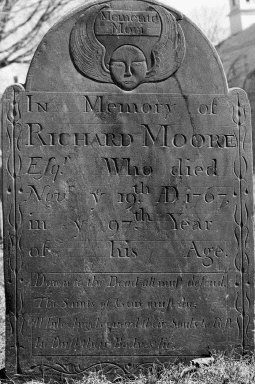 Memento
Mori
In Memory of
RICHARD MOORE
Esqr. Who died
Novr. ye 19th AD 1767.
in ye 97th Year
of his Age.
Down to the Dead all must descend,
The Saints of God must die,
guard their Souls to Rest
In Dust their Bodies lie.